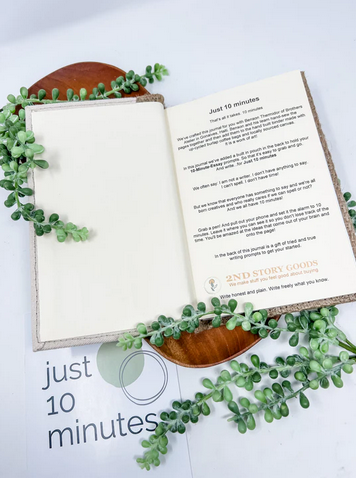 Just 10 minutes
That's all it takes, 10 minutes.
We've crafted this journal for you with Benson Thermidor of Brothers
in Gonaives, Haiti. Benson and his team hand-sew the
pages together and then add them in the hand built binder made with
upcycled burlap coffee bags and locally sourced canvas.
It is a work of art!
In this journal we've added a built in pouch in the back to hold your
10-Minute-Essay prompts. So that it's easy to grab and go.
And write - for Just 10 minutes
We often say I am not a writer, I don't have anything to say.
I can't spell, I don't have time!
But we know that everyone has something to say and we're all
born creatives and who really cares if we can spell or not?
And we all have 10 minutes!
Grab a pen! And pull out your phone and set the alarm to 10
minutes. Leave it where you can see it so you don't lose track of the
time. You'll be amazed at the ideas that come out of your brain and
onto the page!
In the back of this journal is a gift of tried and true
writing prompts to get your started.
2ND STORY GOODS
We make stuff you feel good about buying
Write honest and plain. Write freely what you know.
just
10
minutes